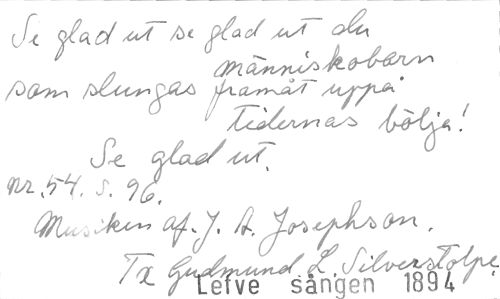 Se glad ut se glad ut du
människobarn
som slungas framåt uppå
tidernas bölja!
Se glad ut.
nr. 54. s. 96.
Musiken af J. A. Josephson.
Tx Gudmund L. Silverstolpe
Lefve sången 1894